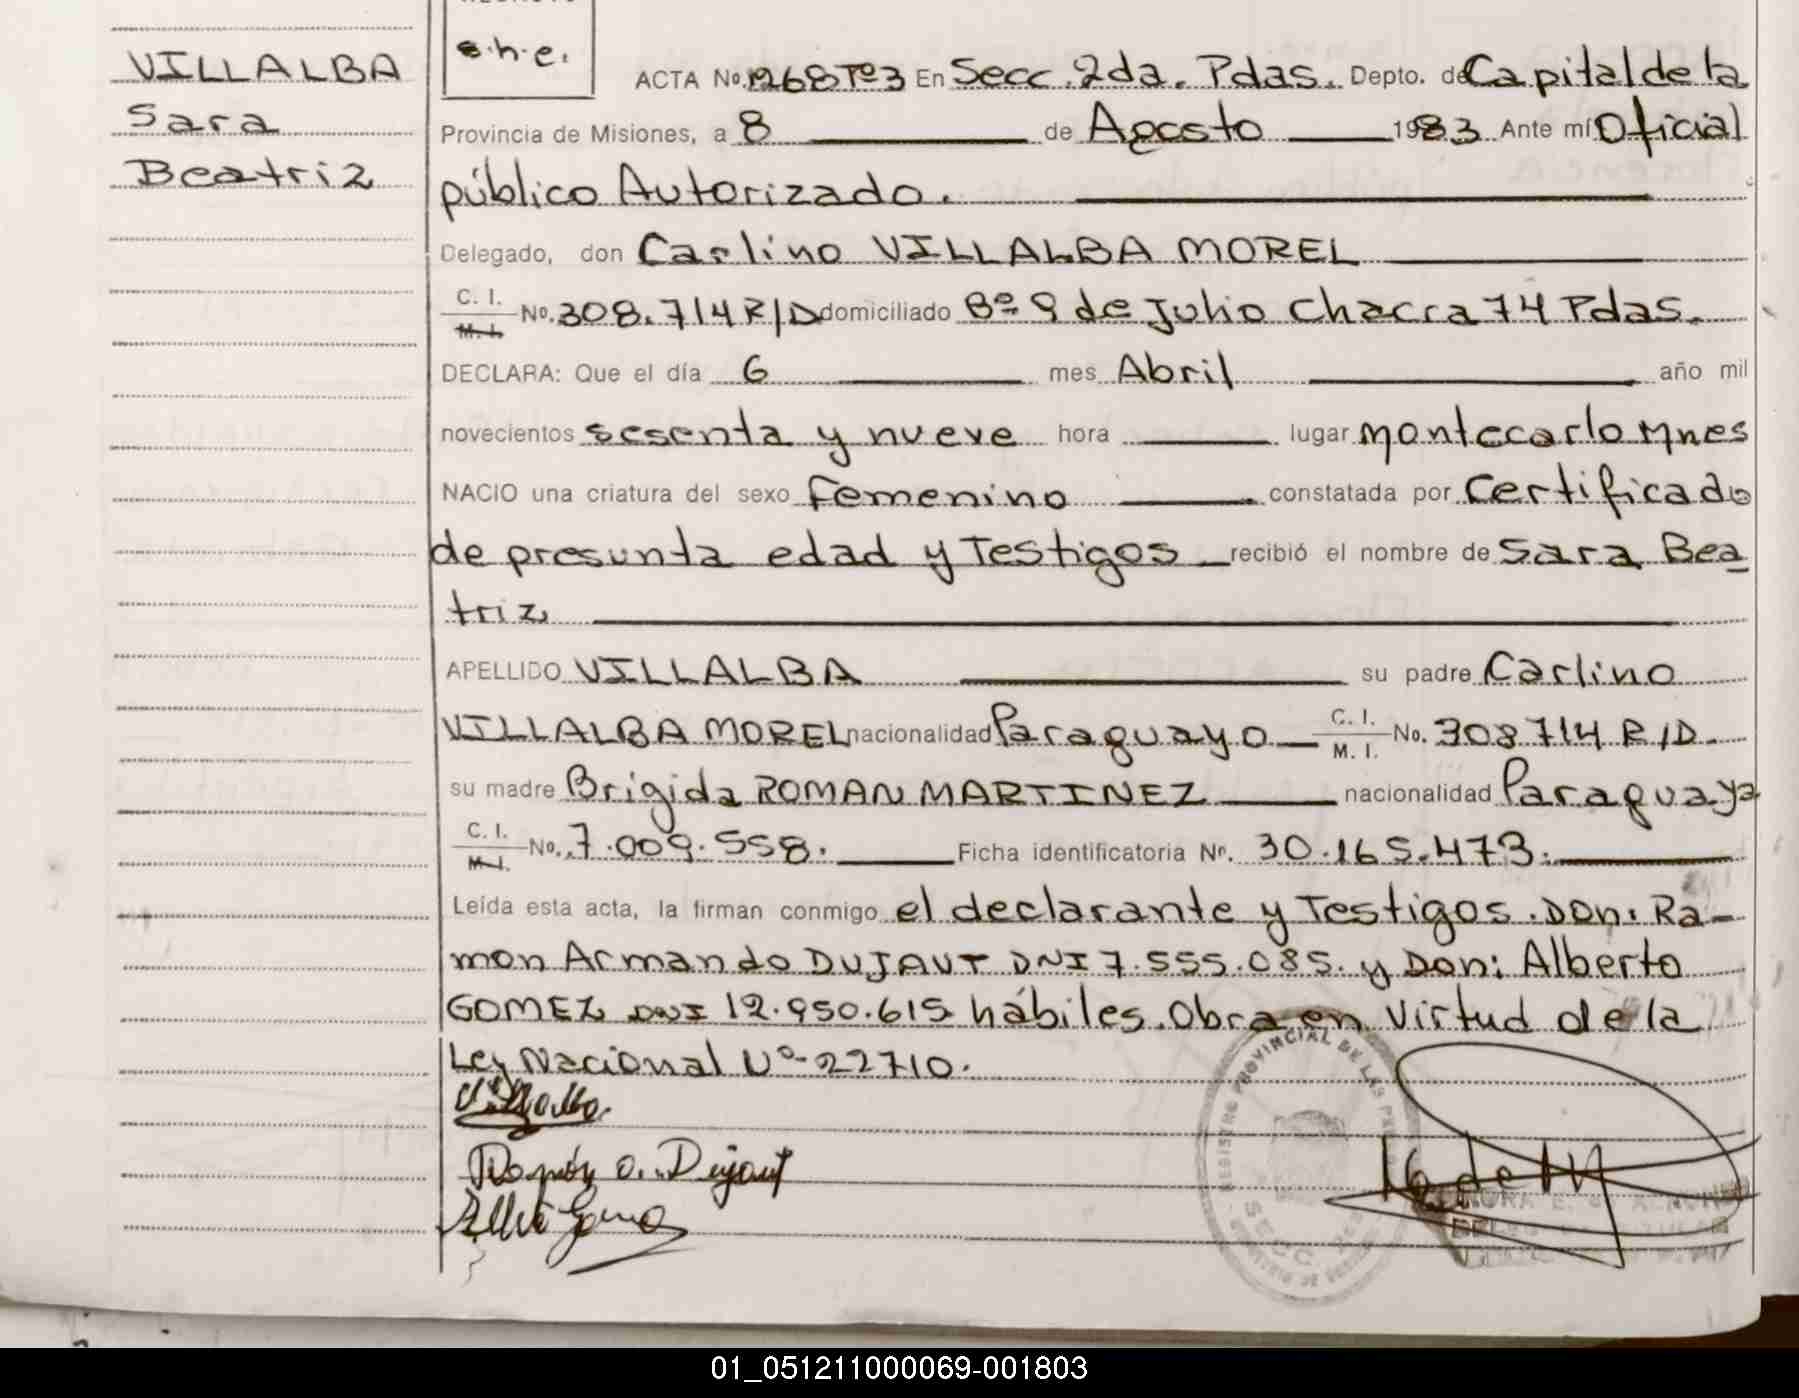 VILLALBA
Sara
Beatriz
s.h.e.
ACTA No. 1268 Tº3 En Secc. 2da. Pdas. Depto. de Capital de la
Provincia de Misiones, a 8 de Agosto 1983 Ante mí Oficial
público Autorizado.
Delegado, don Carlino VILLALBA MOREL
C. I. M. I. No. 308.714 R/D domiciliado Bº 9 de Julio Chacra 74 Pdas.
DECLARA: Que el día 6 mes Abril año mil
novecientos sesenta y nueve hora lugar Montecarlo Mnes
NACIO una criatura del sexo Femenino constatada por Certificado
de presunta edad y Testigos recibió el nombre de Sara Bea
triz
APELLIDO VILLALBA su padre Carlino
VILLALBA MOREL nacionalidad Paraguayo C. I. M. I. No. 308714 R/D.
su madre Brigida ROMAN MARTINEZ nacionalidad Paraguaya
C. I. M. I. No. 7.009.558. Ficha identificatoria Nº. 30.165.473.
Leída esta acta, la firman conmigo el declarante y Testigos. Don: Ra-
mon Armando DUJAUT DNI 7.555.085. y Don: Alberto
GOMEZ DNI 12.950.615 hábiles. Obra en Virtud de la
Ley Nacional Nº 22710.
Villalba.
Ramón A. Dujaut
REGISTRO PROVINCIAL DE LAS
SECC.
01_051211000069-001803